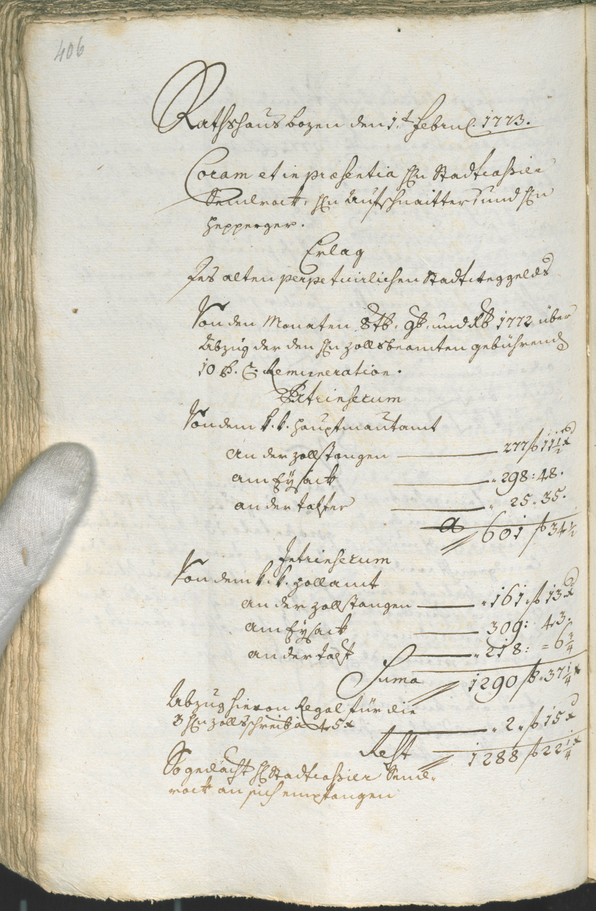 406
Rathshaus bozen den 1.t Febru: 1773.
Coram et in præsentia Hn Stadtcassier
Hn Aufschnaitter, und Hn
Hepperger.
Erlag
des alten perpetuirlichen Stadtweggelds
Von den Monaten 8tb. 9b. und Xb 1772 über
Abzug der den Hn zollsbeamten gebührend
10 p. C: Remuneration.
Extrinsecum
Von dem k. k. Hauptmautamt
an der zollstangen 277 f 11 1/2 x
am Eysack 298: 48.
an der talfer 25. 35.
601 f 34 1/2
Intrinsecum
Von dem k. k. zollamt
an der zollstangen 161 f 13 x
am Eysack 309: 43.
an der talf 218: = 6 3/4
Suma 1290 f 37 1/4 x
Abzug hievon Regal für die
3 Hn zollschreiber 45 x 2 f 15 x
Rest 1288 f 22 1/4 x
So gedacht H Stadtcassier
an sich empfangen